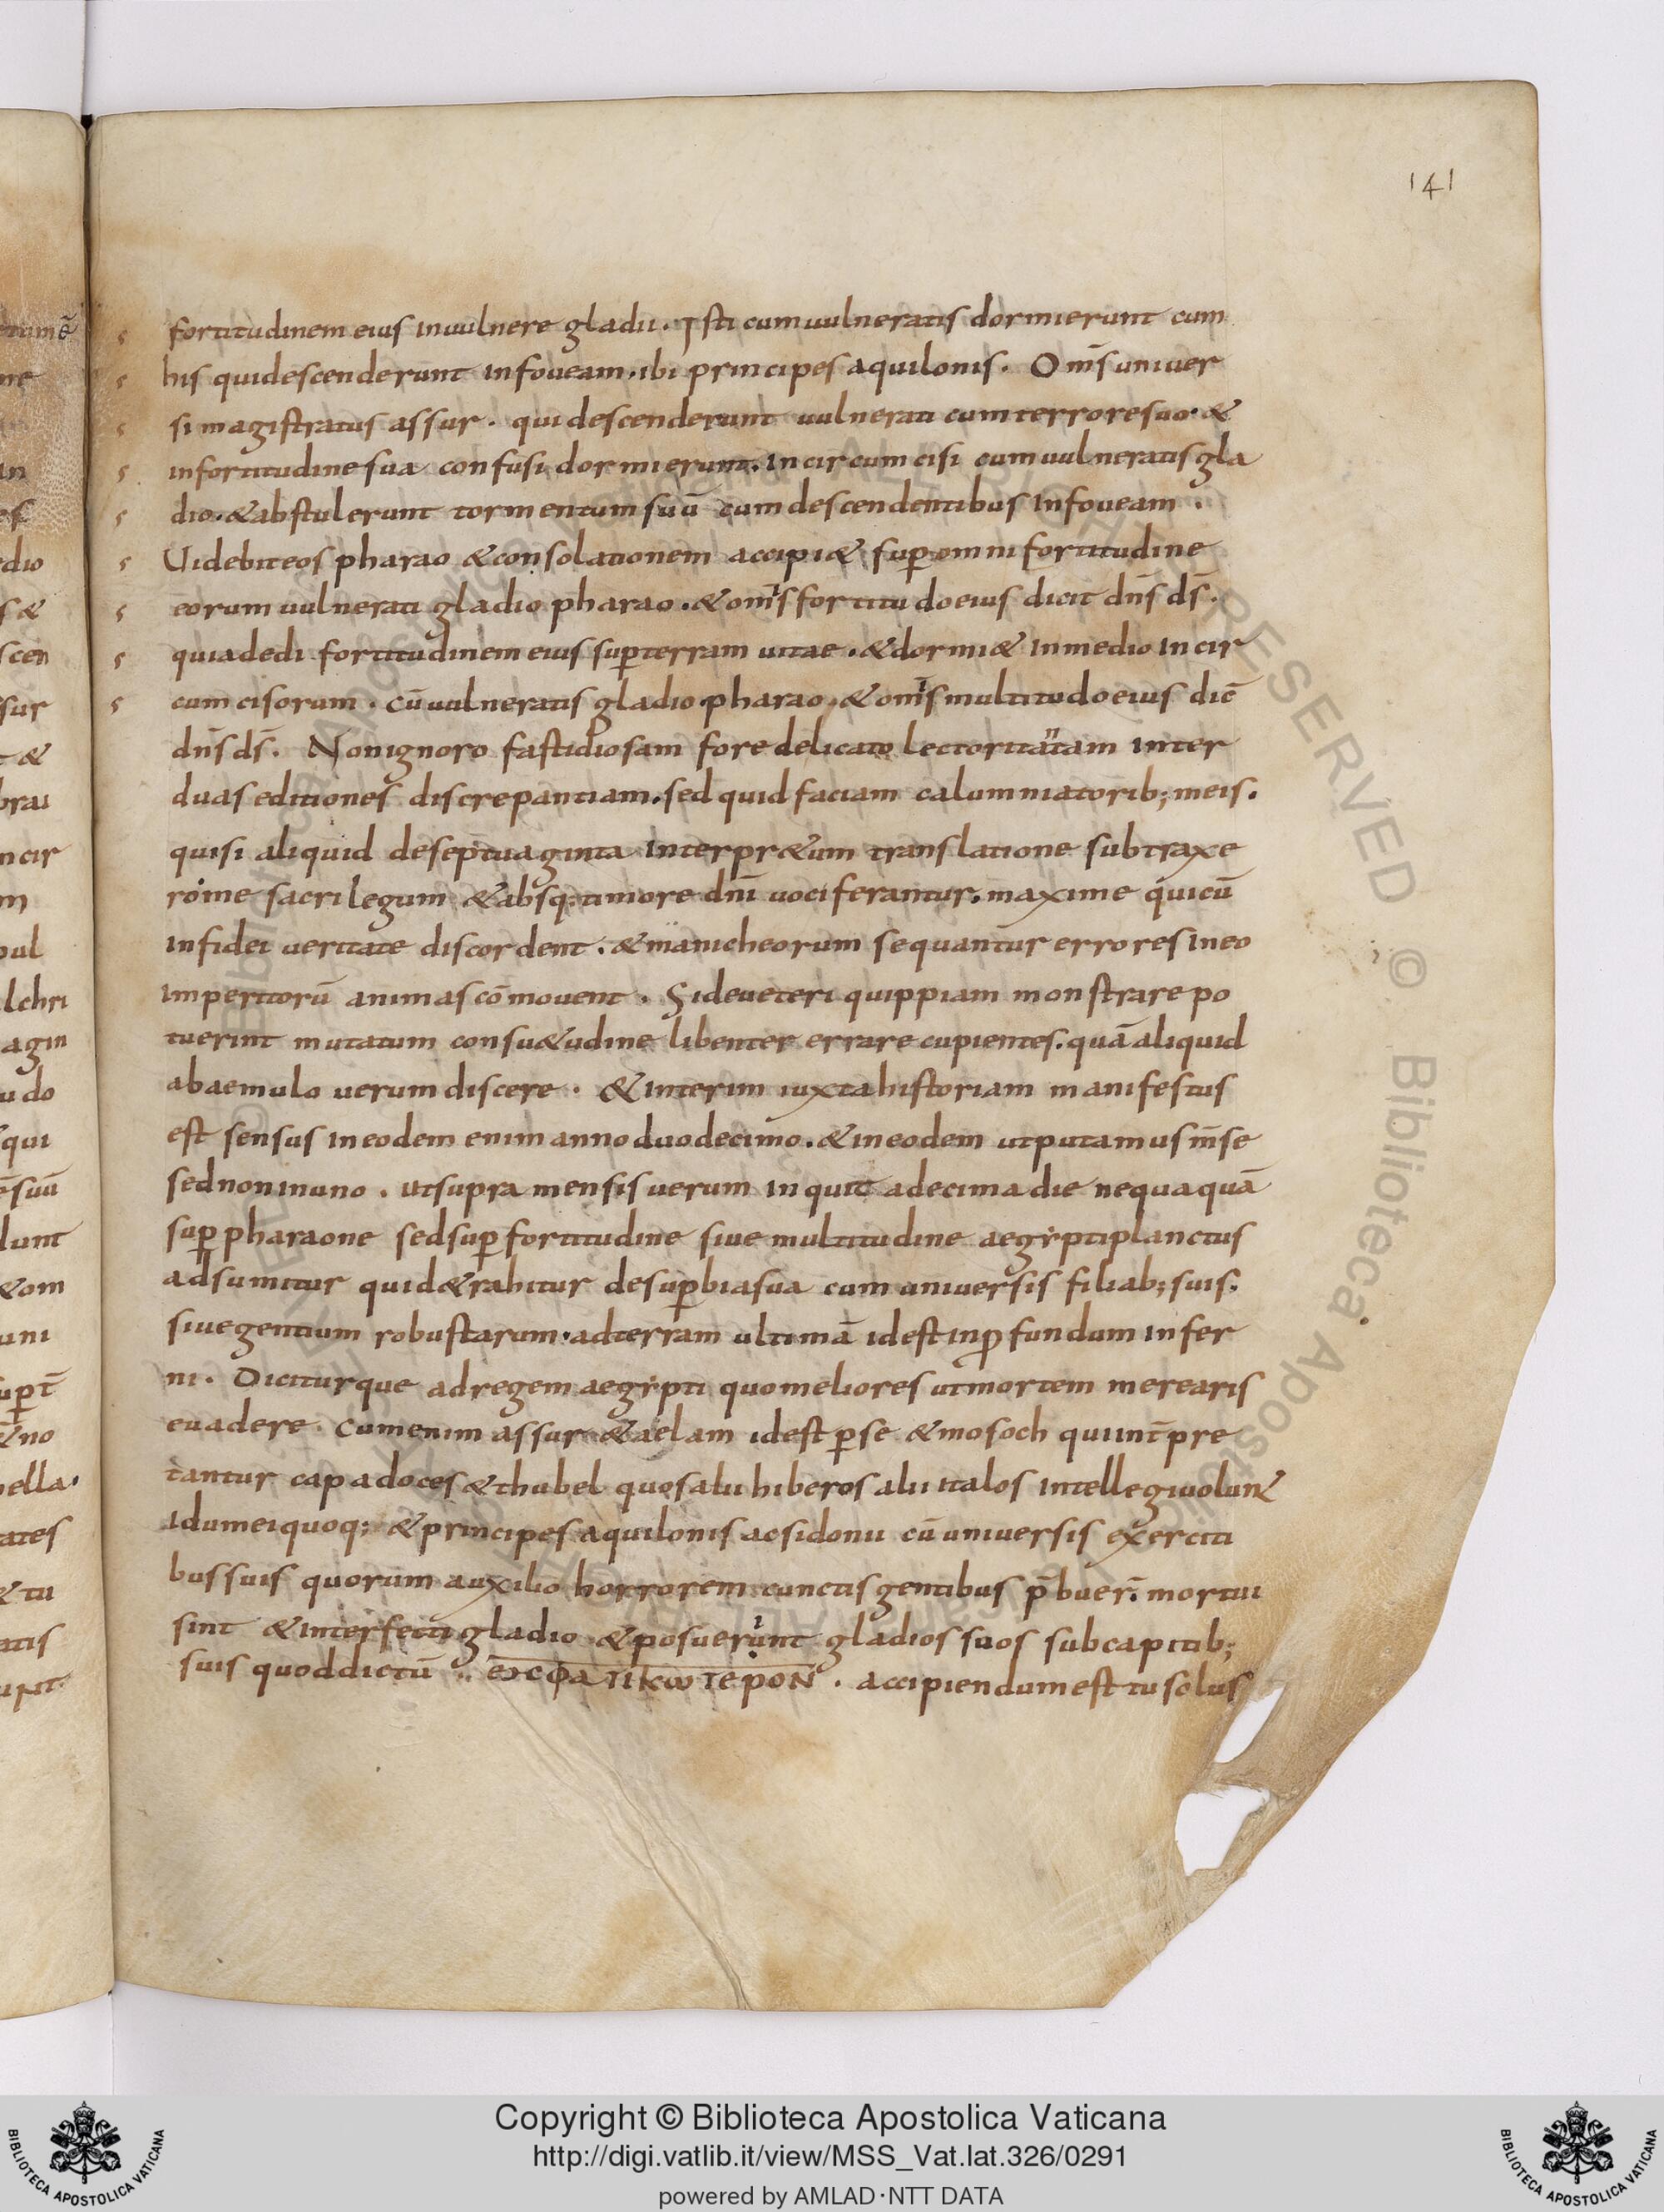 141
fortitudinem eius inuulnere gladii. Isti cum uulneratis dormierunt cum
his quidescenderunt infoueam. ibi principes aquilonis. Om̅s uniuer
si magistratus assur. qui descenderunt uulnerati cum terrore suo. &
infortitudine sua confusi. dormierunt. Incircumcisi cum uulneratis gla
dio. & abstulerunt tormentum suū cum descendentibus infoueam.
Uidebit eos pharao & consolationem accipi& sup̱ omni fortitudine
eorum uulnerati gladio pharao. & om̅is fortitudo eius dicit dn̅s ds̅.
quia dedi fortitudinem eius sup̱ terram uitae. & dormi& inmedio incir
cumcisorum. cū uulneratis gladio. pharao, & om̅is multitudo eius dic̅
dn̅s ds̅. Non ignoro fastidiosam fore delicato lectori tātam inter
duas editiones discrepantiam. sed quid faciam calumniatorib; meis.
qui si aliquid deseptuaginta interpr&um translatione subtraxe
ro me sacrilegum & absq; timore dn̅i uociferantur. maxime qui cū
infidei ueritate discordent. & manicheorum sequantur errores in eo
imperitorū animas cōmouent. Si deueteri quippiam monstrare po
tuerint mutatum consu&udine libenter errare cupientes. quā aliquid
abaemulo uerum discere. & interim iuxta historiam manifestus
est sensus in eodem enim anno duodecimo. & in eodem ut putamus m̅se
sed non in uno. ut supra mensis uerum inquit adecima die nequaquā
sup̱ pharaone sed sup̱ fortitudine siue multitudine aegẏpti planctus
adsumitur qui d&rahitur desup̱bia sua cum uniuersis filiab; suis.
siue gentium robustarum. ad terram ultimā id est inp̱fundum infer
ni. Diciturque ad regem aegẏpti quo meliores ut mortem merearis
euadere. Cum enim assur & aelam id est p̱se & mosoch qui int̅pre
tantur capadoces & thubel quos alii hiberos alii italos intellegi uolunt
Idumei quoq; & principes aquilonis ac sidonii cū uniuersis exerciti
bus suis quorum auxilio horrorem cunctis gentibus p̅buer̅. mortui
sint & interfecti gladio & posuerint gladios suos sub capitib;
suis quod dictū. ΕΙCΦΑΤΙΚωΤΕΡΟΝ. accipiendum est tu solus
Copyright © Biblioteca Apostolica Vaticana
http://digi.vatlib.it/view/MSS_Vat.lat.326/0291
powered by AMLAD·NTT DATA
BIBLIOTECA APOSTOLICA VATICANA
BIBLIOTECA APOSTOLICA VATICANA